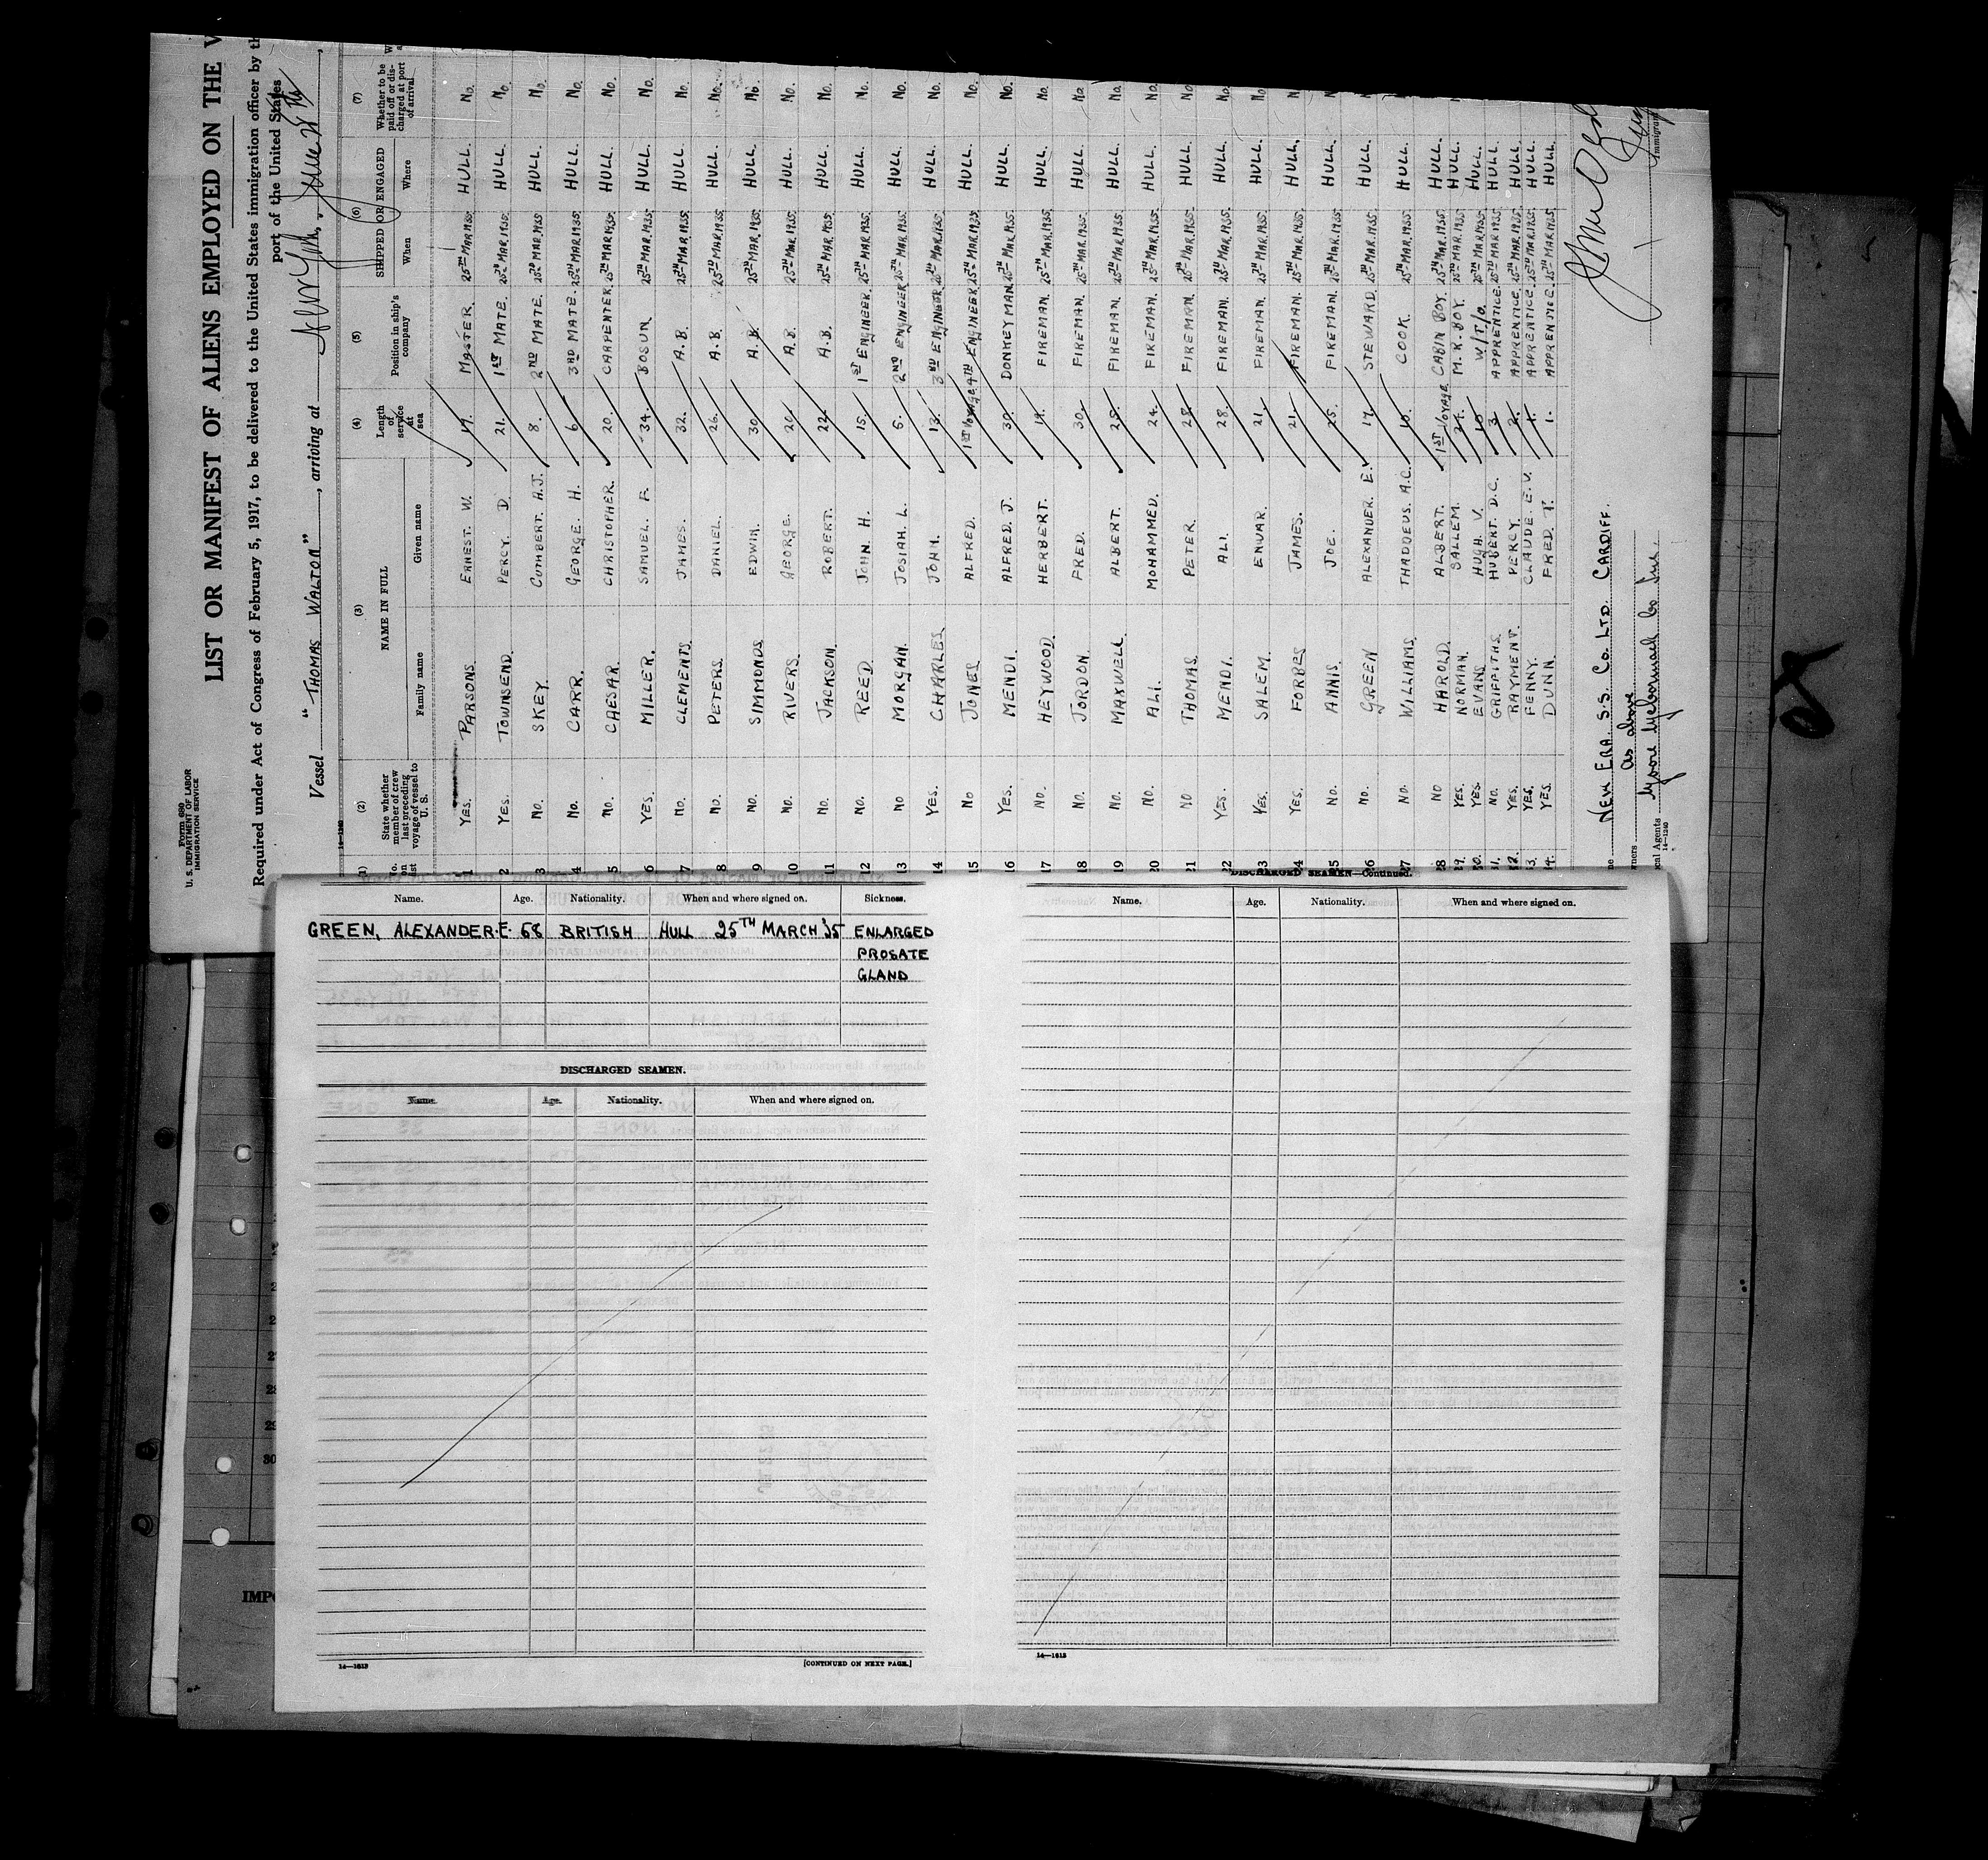 Form 680
U. S. DEPARTMENT OF LABOR
IMMIGRATION SERVICE
LIST OR MANIFEST OF ALIENS EMPLOYED ON THE V
Required under Act of Congress of February 5, 1917, to be delivered to the United States immigration officer by th
port of the United States
Vessel "THOMAS WALTON", arriving at New York, June 28th
14-1240
(1) (2) (3) (4) (5) (6) (7)
No. on list State whether member of crew last preceding voyage of vessel to U. S. NAME IN FULL Length of service at sea Position in ship's company SHIPPED OR ENGAGED Whether to be paid off or discharged at port of arrival
Family name Given name When Where
1 YES. PARSONS ERNEST. W. 19. MASTER 25TH MAR 1935 HULL. No.
2 YES. TOWNSEND. PERCY D. 21. 1ST MATE. 25TH MAR. 1935. HULL. No.
3 No. SKEY. CUTHBERT. A.J. 8. 2ND MATE. 25TH MAR. 1935 HULL. No.
4 No. CARR. GEORGE. H. 6 3RD MATE. 25TH MAR. 1935. HULL. No.
5 No. CAESAR. CHRISTOPHER. 20. CARPENTER. 25TH MAR. 1935. HULL. No.
6 YES. MILLER. SAMUEL. F. 34. BOSUN. 25TH MAR. 1935. HULL. No.
7 No. CLEMENTS. JAMES. 32. A.B. 25TH MAR. 1935. HULL. No.
8 No. PETERS. DANIEL. 26. A.B. 25TH MAR. 1935. HULL. No.
9 No. SIMMONDS. EDWIN. 30. A.B. 25TH MAR. 1935. HULL. No.
10 No. RIVERS. GEORGE. 20. A.B. 25TH MAR. 1935. HULL. No.
11 No. JACKSON. ROBERT. 22. A.B. 25TH MAR. 1935. HULL. No.
12 No. REED. JOHN. H. 15. 1ST ENGINEER. 25TH MAR. 1935. HULL. No.
13 No MORGAN. JOSIAH. L. 5. 2ND ENGINEER 25TH MAR. 1935. HULL. No.
14 YES. CHARLES. JOHN. 13. 3RD ENGINEER. 25TH MAR. 1935. HULL. No.
15 No JONES ALFRED. 1ST VOYAGE 4TH ENGINEER. 25TH MAR. 1935. HULL No.
16 YES. MENDI. ALFRED. J. 30. DONKEYMAN. 25TH MAR. 1935. HULL. No.
17 No. HEYWOOD. HERBERT. 19. FIREMAN. 25TH MAR. 1935. HULL. No.
18 No. JORDON. FRED. 30. FIREMAN. 25TH MAR. 1935. HULL. No
19 No. MAXWELL ALBERT. 25. FIREMAN. 25TH MAR. 1935. HULL. No.
20 No. ALI. MOHAMMED. 24. FIREMAN. 25TH MAR. 1935. HULL. No.
21 No THOMAS. PETER. 28. FIREMAN. 25TH MAR. 1935. HULL. No
22 YES. MENDI. ALI. 28. FIREMAN. 25TH MAR. 1935. HULL. No.
23 YES. SALEM. ENUAR. 21. FIREMAN. 25TH MAR. 1935. HULL. No
24 YES. FORBES JAMES. 21. FIREMAN. 25TH MAR. 1935. HULL.
25 No. ANNIS. JOE. 25. FIREMAN. 25TH MAR. 1935. HULL.
26 No. GREEN ALEXANDER. E. 17. STEWARD. 25TH MAR. 1935. HULL.
27 No. WILLIAMS. THADDEUS. A.C. 10. COOK. 25TH MAR. 1935. HULL.
28 No HAROLD. ALBERT. 1ST VOYAGE. CABIN BOY. 25TH MAR. 1935. HULL.
29. YES. NORMAN. SALLEM. M.R. BOY. 25TH MAR. 1935. HULL.
30. YES. EVANS. HUGH. V. 10 W/T/O. 25TH MAR. 1935. HULL.
31. No. GRIFFITHS. HUBERT. D.C. 3. APPRENTICE. 25TH MAR. 1935. HULL
32. YES. RAYMENT. PERCY. 2. APPRENTICE. 25TH MAR. 1935. HULL.
33. YES. FENNY. CLAUDE. E.V. 1. APPRENTICE. 25TH MAR. 1935. HULL.
34. YES. DUNN. FRED. T. 1. APPRENTICE. 25TH MAR. 1935. HULL.
NEW ERA. S.S. Co. LTD. CARDIFF.
as above
cal Agents
14-1240
Immigrant
Name. Age. Nationality. When and where signed on. Sickness.
GREEN, ALEXANDER.E. 68 BRITISH HULL 25TH MARCH '35 ENLARGED
PROSATE
GLAND
DISCHARGED SEAMEN.
Name. Age. Nationality. When and where signed on.
14—1613
[CONTINUED ON NEXT PAGE.]
DISCHARGED SEAMEN—Continued.
Name. Age. Nationality. When and where signed on.
14—1613
30
IMPO